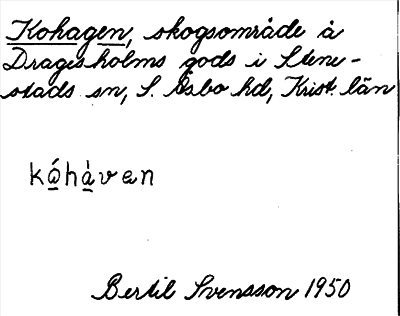 Kohagen, skogsområde å
Dragesholms gods i Stene-
stads sn, S. Åsbo hd, Krist. län
kó̲hà̲ven
Bertil Svensson 1950